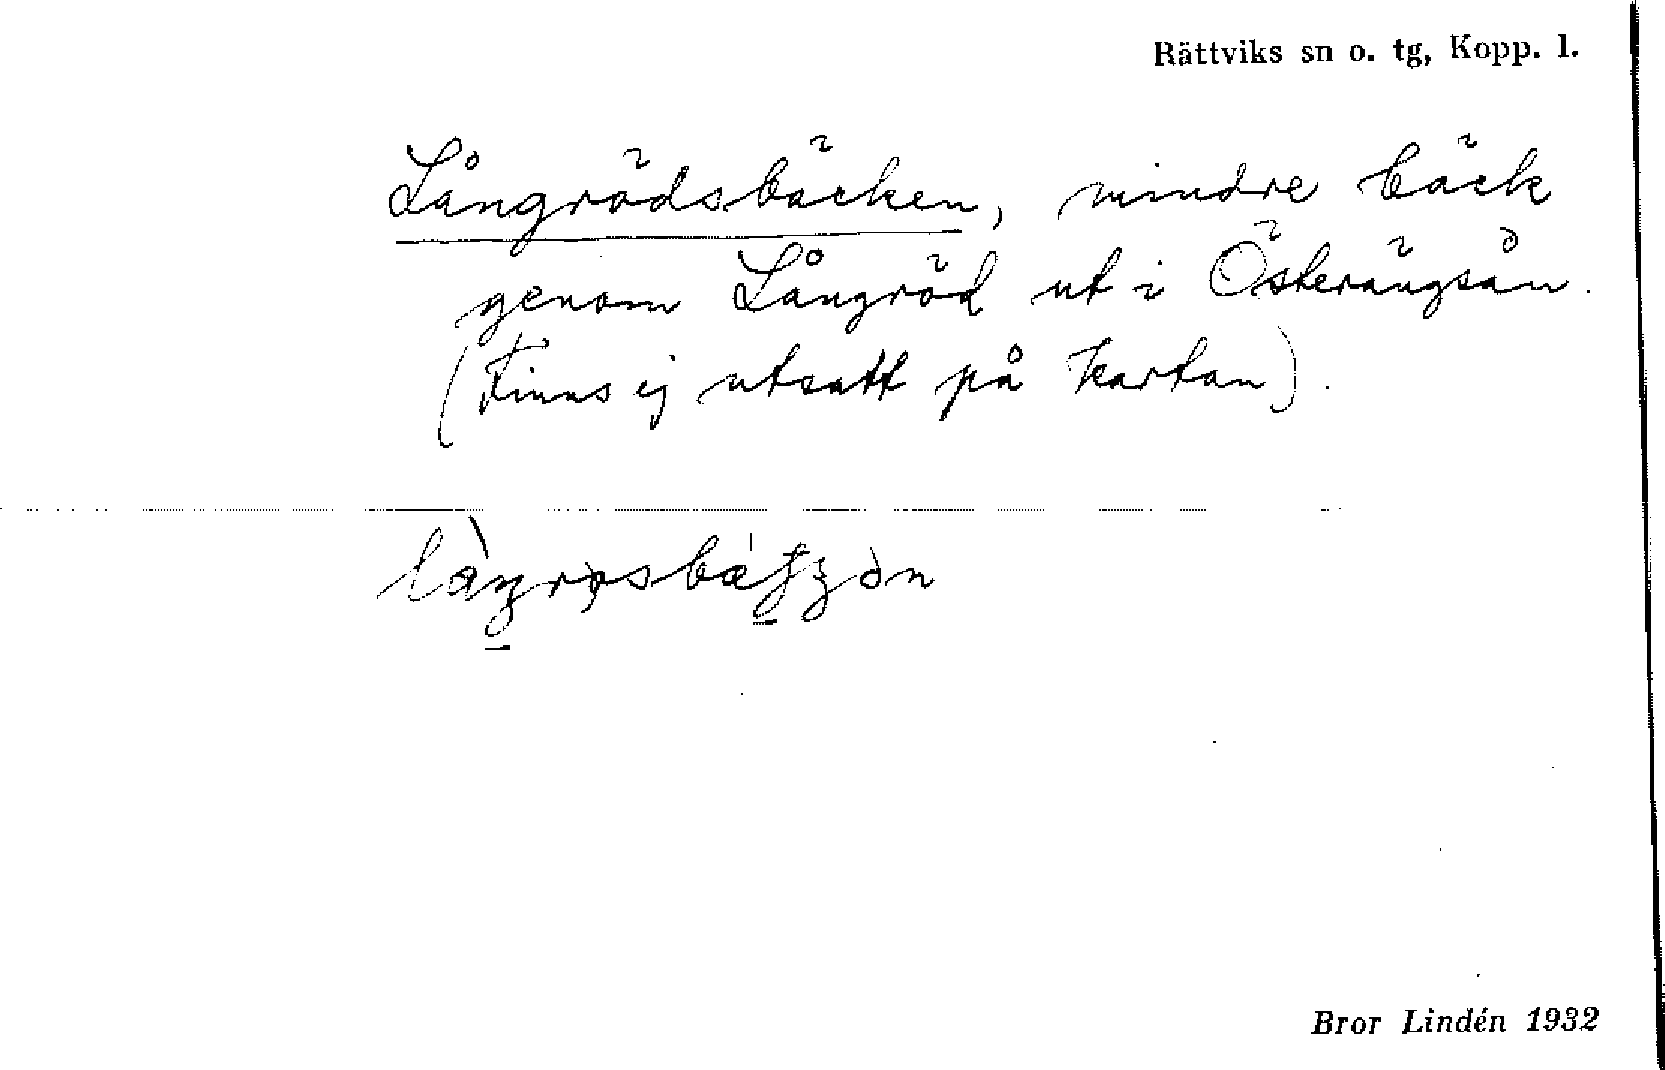 Rättviks sn o. tg, Kopp. l.
Långrödsbäcken, mindre bäck
genom Långröd ut i Österängsån.
(Finns ej utsatt på kartan).
Bror Lindén 1932